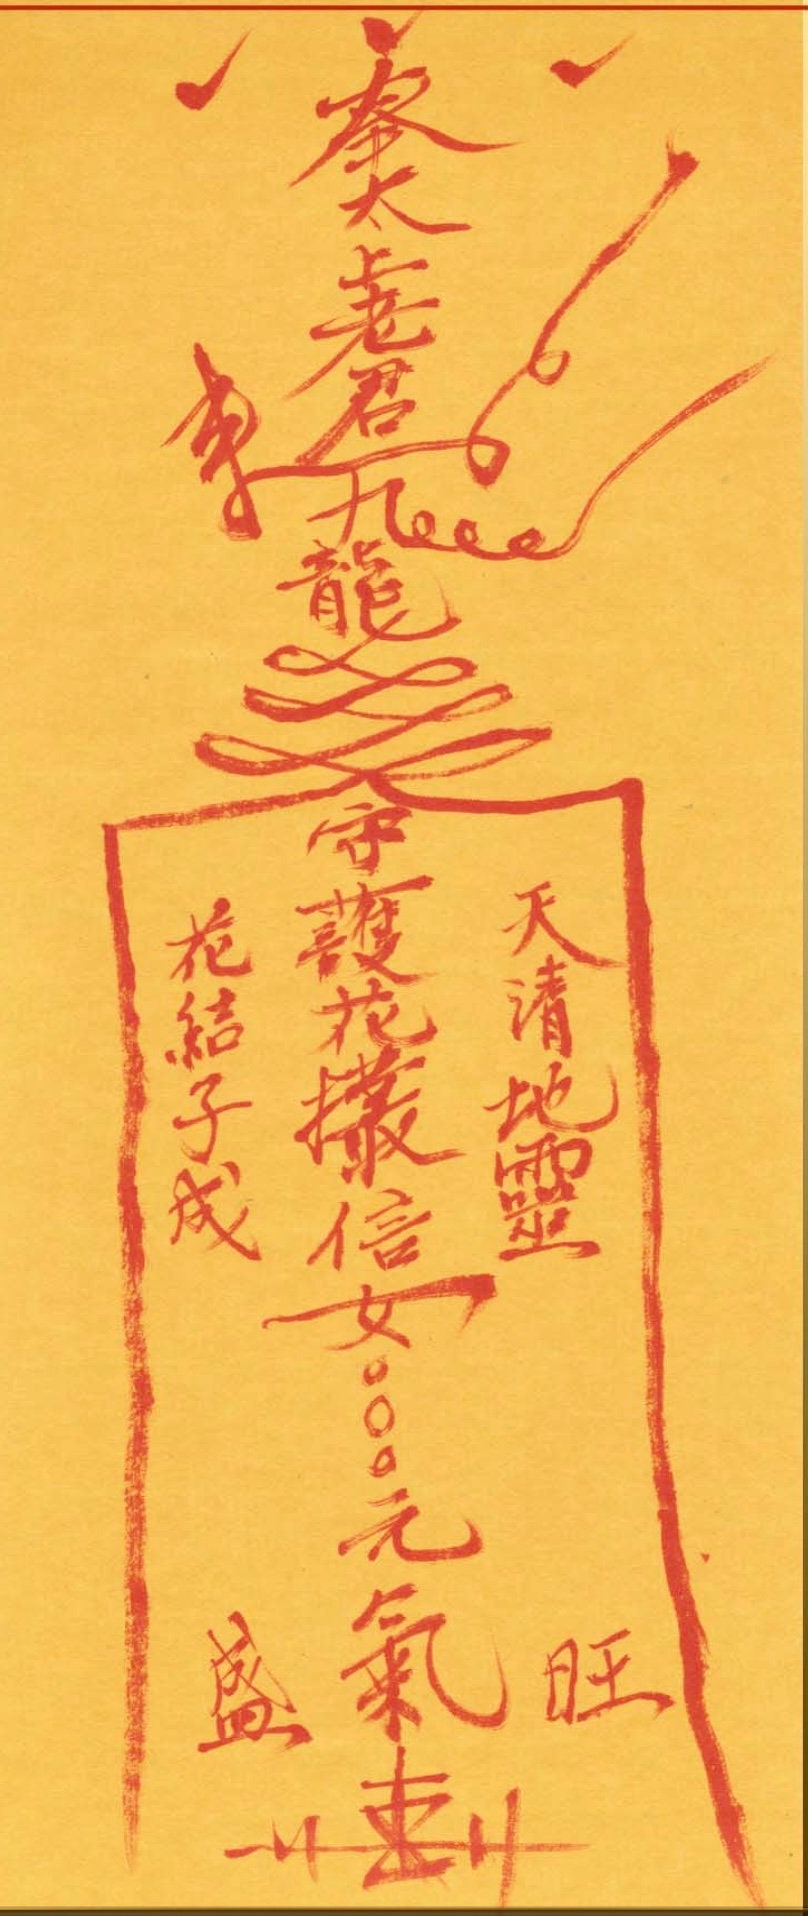 奉太上老君九龍
守護花叢信女○○○元氣
天清地靈
花結子成
旺
盛